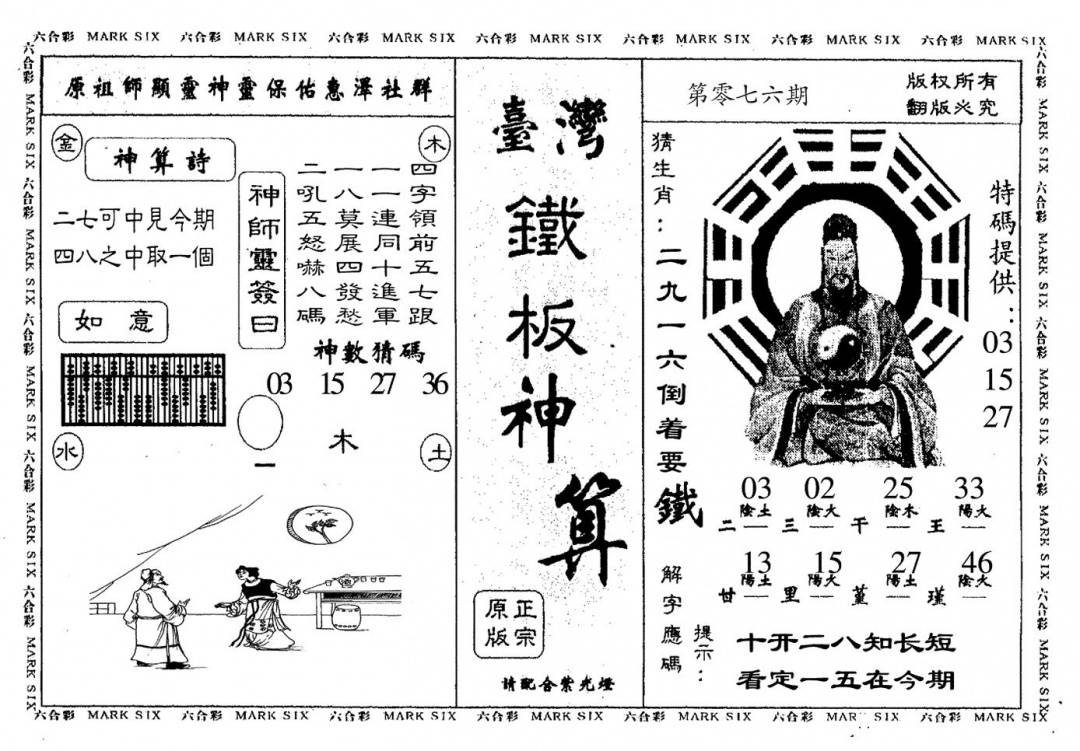 六合彩 MARK SIX 六合彩 MARK SIX 六合彩 MARK SIX 六合彩 MARK SIX 六合彩 MARK SIX 六合彩 MARK SIX 六合彩 MARK SIX
六合彩 MARK SIX 六合彩 MARK SIX 六合彩 MARK SIX 六合彩 MARK SIX 六合彩 MARK SIX
原祖師顯靈神靈保佑惠澤社群
金
木
神算詩
二七可中見今期
四八之中取一個
如意
神師靈簽曰
四字領前五七跟
一一連同十進軍
一八莫展四發愁
二吼五怒嚇八碼
神數猜碼
03 15 27 36
木
水
土
臺灣
鐵板神算
正宗
原版
請配合紫光燈
第零七六期
版权所有
翻版必究
猜生肖：二九一六倒着要鐵
特碼提供：
03
15
27
03 02 25 33
陰土 陰火 陰木 陽火
二 三 干 王
13 15 27 46
陽土 陽火 陽土 陰火
廿 里 堇 瑾
解字應碼
提示：
十开二八知长短
看定一五在今期
六合彩 MARK SIX 六合彩 MARK SIX 六合彩 MARK SIX 六合彩 MARK SIX 六合彩 MARK SIX
六合彩 MARK SIX 六合彩 MARK SIX 六合彩 MARK SIX 六合彩 MARK SIX 六合彩 MARK SIX 六合彩 MARK SIX 六合彩 MARK SIX